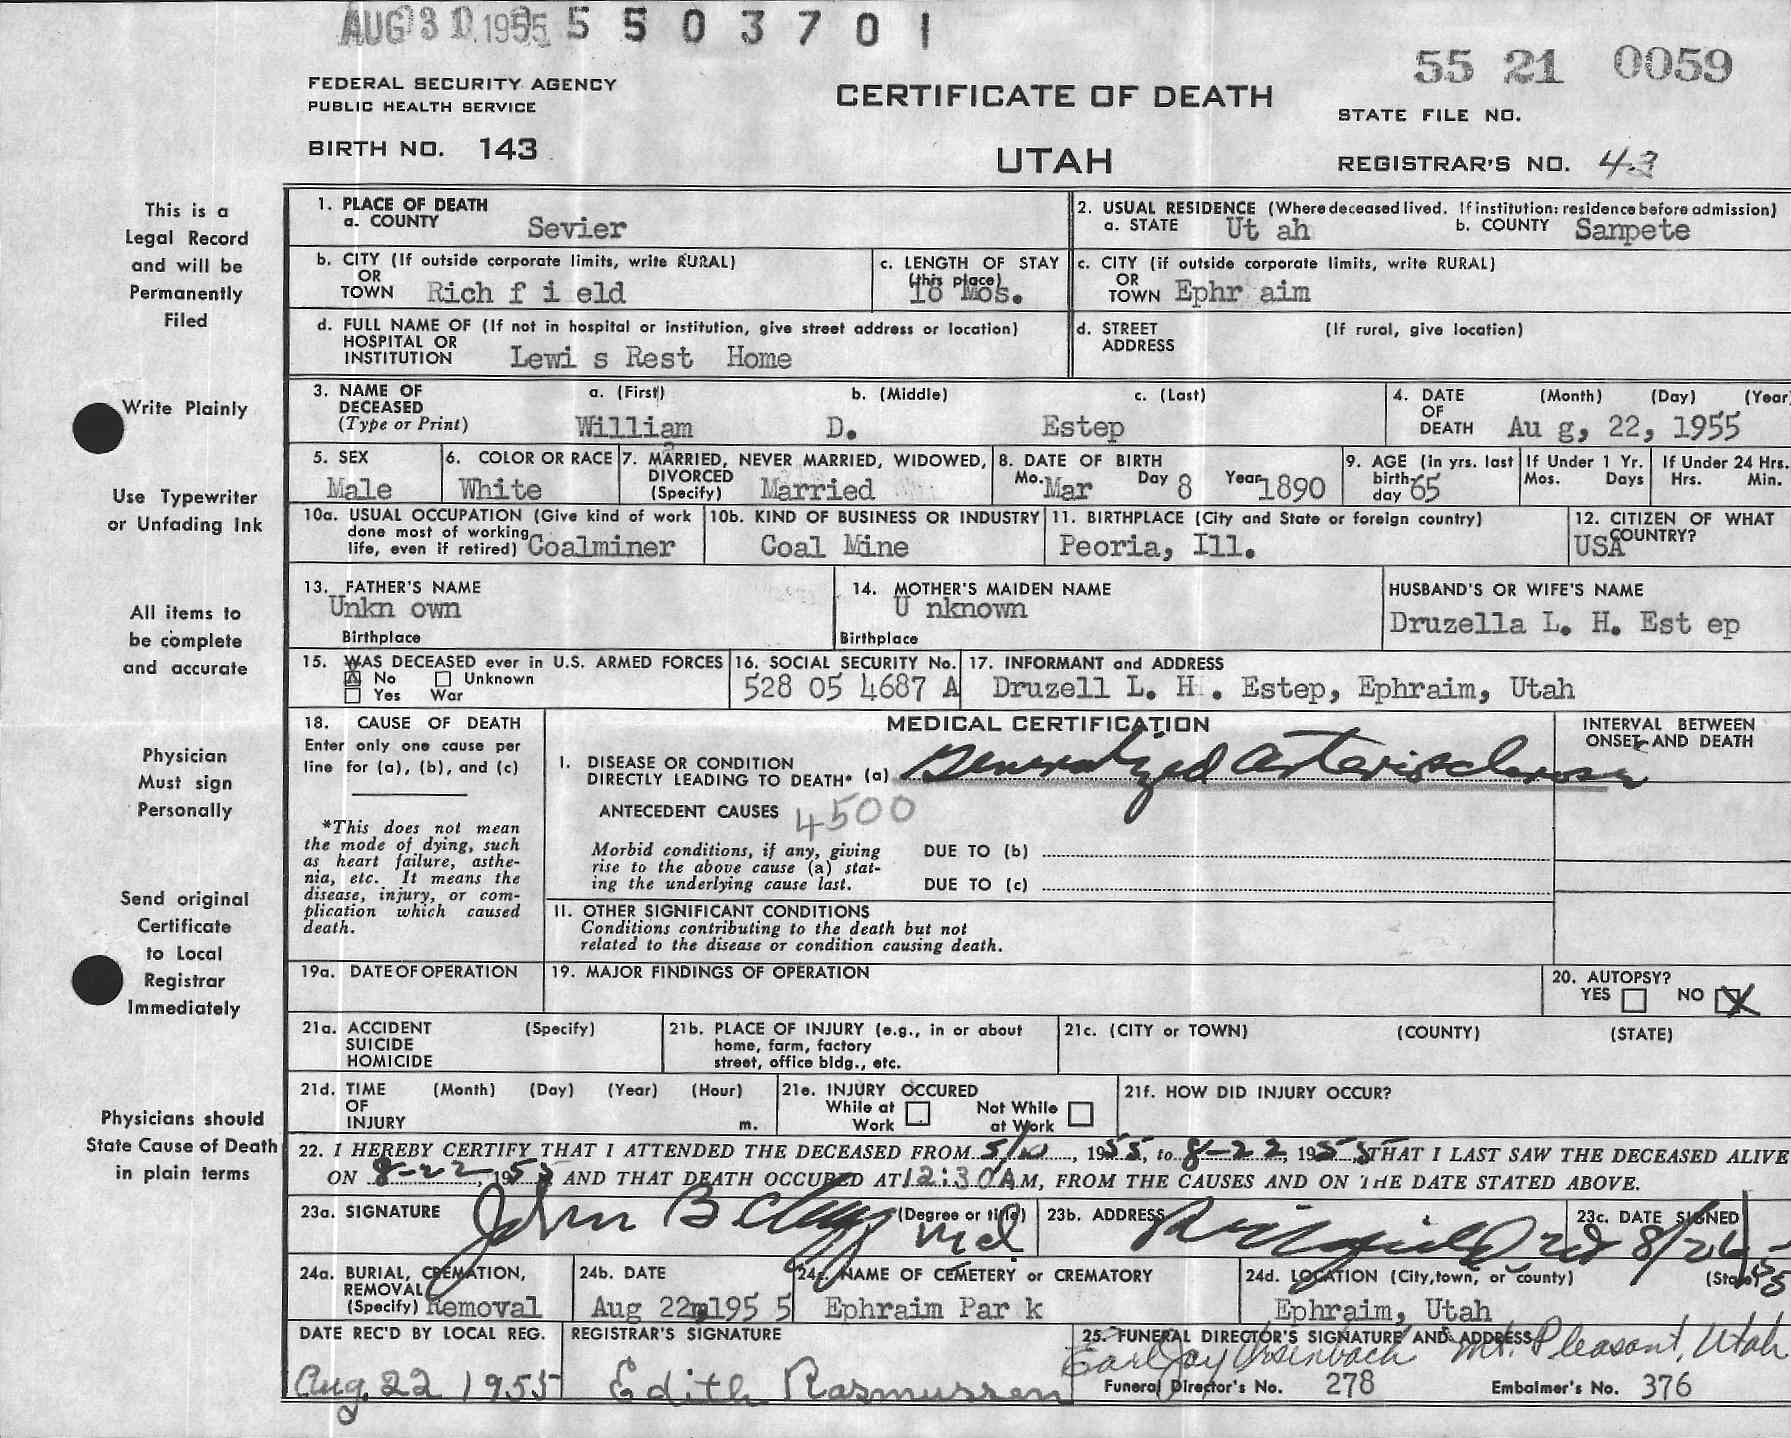 AUG 31 1955 5 5 0 3 7 0 1
55 21 0059
FEDERAL SECURITY AGENCY
PUBLIC HEALTH SERVICE
CERTIFICATE OF DEATH
STATE FILE NO.
BIRTH NO. 143
UTAH
REGISTRAR'S NO. 43
This is a
Legal Record
and will be
Permanently
Filed
Write Plainly
Use Typewriter
or Unfading Ink
All items to
be complete
and accurate
Physician
Must sign
Personally
Send original
Certificate
to Local
Registrar
Immediately
Physicians should
State Cause of Death
in plain terms
1. PLACE OF DEATH
a. COUNTY Sevier
2. USUAL RESIDENCE (Where deceased lived. If institution: residence before admission)
a. STATE Ut ah b. COUNTY Sanpete
b. CITY (If outside corporate limits, write RURAL)
OR
TOWN Rich f i eld
c. LENGTH OF STAY
(this place)
18 Mos.
c. CITY (if outside corporate limits, write RURAL)
OR
TOWN Ephr aim
d. FULL NAME OF (If not in hospital or institution, give street address or location)
HOSPITAL OR
INSTITUTION Lewi s Rest Home
d. STREET (If rural, give location)
ADDRESS
3. NAME OF a. (First) b. (Middle) c. (Last)
DECEASED
(Type or Print) William D. Estep
4. DATE (Month) (Day) (Year
OF
DEATH Au g, 22, 1955
5. SEX
Male
6. COLOR OR RACE
White
7. MARRIED, NEVER MARRIED, WIDOWED,
DIVORCED
(Specify) Married
8. DATE OF BIRTH
Mo. Mar Day 8 Year 1890
9. AGE (in yrs. last
birth-
day 65
If Under 1 Yr.
Mos. Days
If Under 24 Hrs.
Hrs. Min.
10a. USUAL OCCUPATION (Give kind of work
done most of working
life, even if retired) Coalminer
10b. KIND OF BUSINESS OR INDUSTRY
Coal Mine
11. BIRTHPLACE (City and State or foreign country)
Peoria, Ill.
12. CITIZEN OF WHAT
COUNTRY?
USA
13. FATHER'S NAME
Unkn own
Birthplace
14. MOTHER'S MAIDEN NAME
U nknown
Birthplace
HUSBAND'S OR WIFE'S NAME
Druzella L. H. Est ep
15. WAS DECEASED ever in U.S. ARMED FORCES
No Unknown
Yes War
16. SOCIAL SECURITY No.
528 05 4687 A
17. INFORMANT and ADDRESS
Druzell L. H . Estep, Ephraim, Utah
18. CAUSE OF DEATH
Enter only one cause per
line for (a), (b), and (c)
*This does not mean
the mode of dying, such
as heart failure, asthe-
nia, etc. It means the
disease, injury, or com-
plication which caused
death.
MEDICAL CERTIFICATION
INTERVAL BETWEEN
ONSET AND DEATH
I. DISEASE OR CONDITION
DIRECTLY LEADING TO DEATH* (a) Generalized arteriosclerosis
ANTECEDENT CAUSES 4500
Morbid conditions, if any, giving
rise to the above cause (a) stat-
ing the underlying cause last.
DUE TO (b)
DUE TO (c)
II. OTHER SIGNIFICANT CONDITIONS
Conditions contributing to the death but not
related to the disease or condition causing death.
19a. DATE OF OPERATION
19. MAJOR FINDINGS OF OPERATION
20. AUTOPSY?
YES NO X
21a. ACCIDENT (Specify)
SUICIDE
HOMICIDE
21b. PLACE OF INJURY (e.g., in or about
home, farm, factory
street, office bldg., etc.
21c. (CITY or TOWN) (COUNTY) (STATE)
21d. TIME (Month) (Day) (Year) (Hour)
OF
INJURY m.
21e. INJURY OCCURED
While at Work
Not While at Work
21f. HOW DID INJURY OCCUR?
22. I HEREBY CERTIFY THAT I ATTENDED THE DECEASED FROM 5/10, 1955, to 8-22, 1955, THAT I LAST SAW THE DECEASED ALIVE
ON 8-22, 1955 AND THAT DEATH OCCURED AT 12:30 A.M, FROM THE CAUSES AND ON THE DATE STATED ABOVE.
23a. SIGNATURE John B (Degree or title) Md
23b. ADDRESS
23c. DATE SIGNED
8/26/55
24a. BURIAL, CREMATION,
REMOVAL
(Specify) Removal
24b. DATE
Aug 22, 195 5
24c. NAME OF CEMETERY or CREMATORY
Ephraim Par k
24d. LOCATION (City, town, or county) (State)
Ephraim, Utah
DATE REC'D BY LOCAL REG.
Aug. 22 1955
REGISTRAR'S SIGNATURE
Edith Rasmussen
25. FUNERAL DIRECTOR'S SIGNATURE AND ADDRESS
Earl Jay Ursenbach Mt. Pleasant, Utah
Funeral Director's No. 278 Embalmer's No. 376